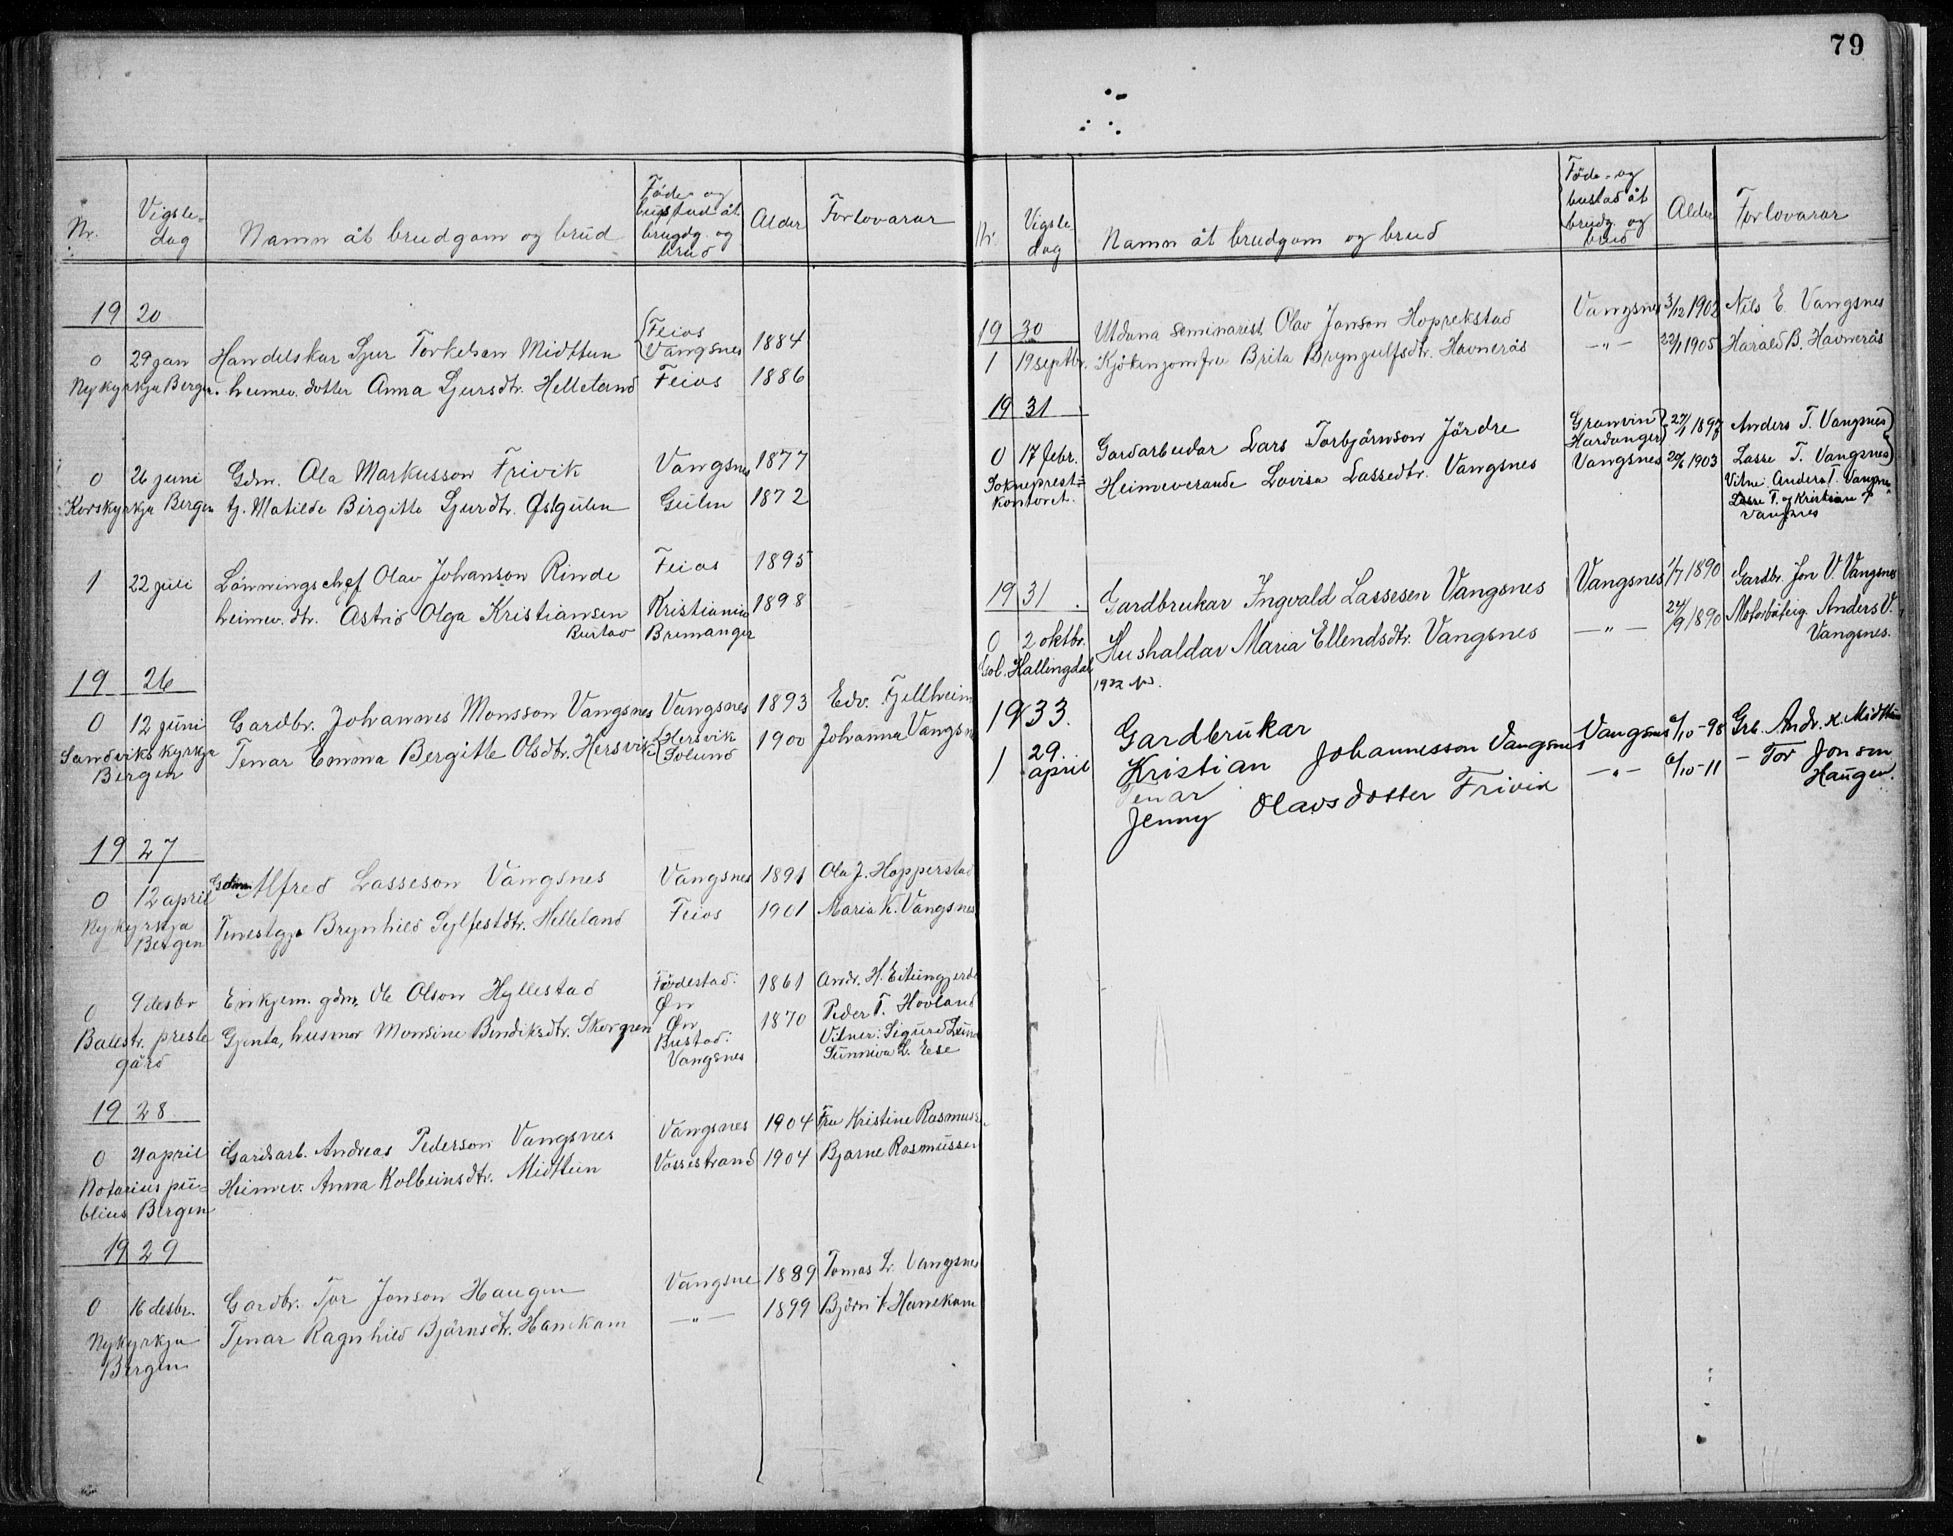 79
Nr.
Vigsle-
dag
Namn åt brudgom og brud
Føde- og
bustad åt
brugdg. og
brud
Alder
Forlovarar
1920
0 29 jan Handelskar Sjur Torkelsen Midttun Feios Vangsnes 1884
Nykyrkja Bergen. heimev. dotter Anna Sjursdtr. Helleland Feios 1886
0 26 juni Gdm. Ola Markusson Frivik Vangsnes 1877
Korskyrkja Bergen tj. Matilde Birgitte Sjurdtr. Østgulen Gulen 1872
1 22 juli Lönningschef Olav Johanson Rinde Feios 1895
heimev. dtr. Astrid Olga Kristiansen Kristiania 1898
Burtao Bremanger
1926
0 12 juni Gardbr. Johannes Monsson Vangsnes Vangsnes 1893 Edv. Fjellheim
Sandvikskyrkja Tenar Emma Bergitte Olsdtr. Hersvik Hersvik Solund 1900 Johanna Vangsnes
Bergen
1927
0 12 april Gdm. Alfred Lasseson Vangsnes Vangsnes 1891 Ola J. Hopperstad
Nykyrkja Tenestgj. Brynhild Sylfestdtr. Helleland Feios 1901 Maria K. Vangsnes
Bergen
0 9 desbr Enkjem. gdm. Ole Olson Hyllestad Fødestad: 1861 Andr. H. Eitungjerde
Øn Peder T. Hovland
Balestr. preste Gjenta, husmor Monsine Bendiksdtr. Skorgen Øn 1870 Vitner: Sigurd Lund
gård Bustad: Sunniva L. Ese
Vangsnes
1928
0 21 april Gardsarb. Andreas Pederson Vangsnes Vangsnes 1904 Fru Kristine Rasmuss.
Notarius pu= Heimev. Anna Kolbeinsdtr. Midttein Vossestrand 1904 Bjarne Rasmussen
blius Bergen
1929
0 16 desbr. Gardbr. Tor Jonson Haugen Vangsne 1889 Tomas L. Vangsnes
Nykyrkja Tenar Ragnhild Björnsdtr. Hanekam —„— 1899 Björn J. Hanekam
Bergen
Nr.
Vigsle
dag
Namn åt brudgom og brud
Føde- og
bustad åt
brudg. og
brud
Alder
Forlovarar
1930 Utdana seminarist Olav Janson Hoprekstad Vangsnes 3/12 1902 Nils E. Vangsnes
1 19 septbr. Kjökenjomfru Brita Bryngulfsdtr. Havnerås —„— 22/1 1905 Harald B. Havnerås
1931
0 17 febr. Gardarbeidar Lars Torbjörnson Jördre Granvin Hardanger 27/1 1897 Anders T. Vangsnes
Sokneprest= Heimeverande Lovisa Lassedtr. Vangsnes Vangsnes 20/6 1903 Lasse T. Vangsnes
kontoret. Vitne: Anders T. Vangsn.
Lasse T. og Kristian T
Vangsnes
1931. Gardbrukar Ingvald Lassesen Vangsnes Vangsnes 1/7 1890 Gardbr. Jon V. Vangsnes
0 2 oktbr. Hushaldar Maria Ellendsdtr. Vangsnes —„— 24/9 1890 Motorbåteig. Anders V.
Gol. Hallingdal Vangsnes.
1922 No.
1933. Gardbrukar
1 29. april Kristian Johannesson Vangsnes Vangsnes 6/10-98 Grb. Andr. K. Midttun
Tenar —„— 6/10-11 — Tor Jonson
Jenny Olavsdotter Frivik Haugen.